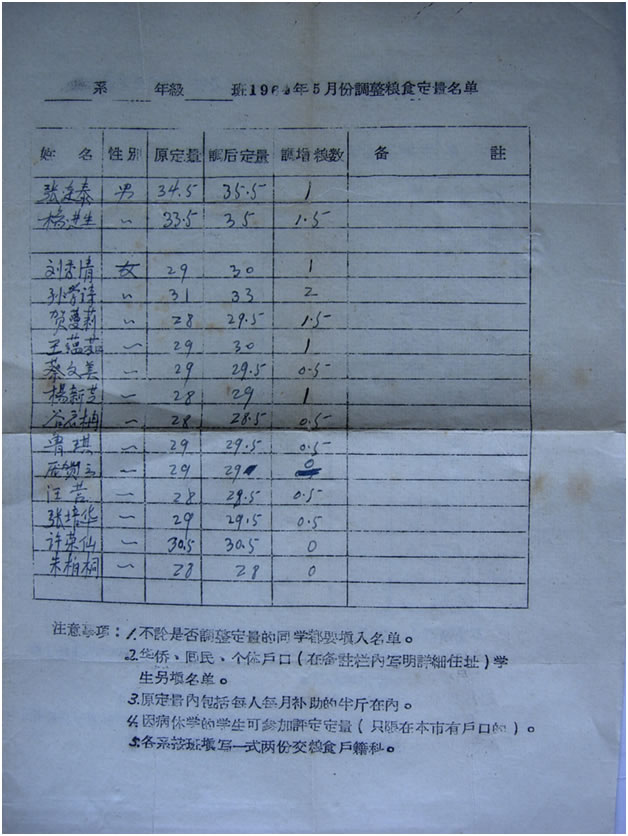 系 年級 班196 年5月份調整粮食定量名单
姓 名 性别 原定量 調后定量 調增粮数 备 註
张廷泰 男 34.5 35.5 1
杨进生 〃 33.5 35 1.5
刘秀清 女 29 30 1
孙 〃 31 33 2
贺蔓莉 〃 28 29.5 1.5
王蕴茹 〃 29 30 1
蔡文美 〃 29 29.5 0.5
楊新芝 〃 28 29 1
谷 〃 28 28.5 0.5
曹琪 〃 29 29.5 0.5
〃 29 29 0
汪芸 〃 28 29.5 0.5
张培华 〃 29 29.5 0.5
许荣仙 〃 30.5 30.5 0
朱柏桐 〃 28 28 0
注意事項：1.不論是否調整定量的同学都要填入名单。
2.华侨、回民、个体戶口（在备註栏內写明詳細住址）学
生另填名单。
3.原定量內包括每人每月补助的半斤在內。
4.因病休学的学生可参加評定定量（只限在本市有戶口的）。
5.各系按班填写一式两份交粮食戶籍科。